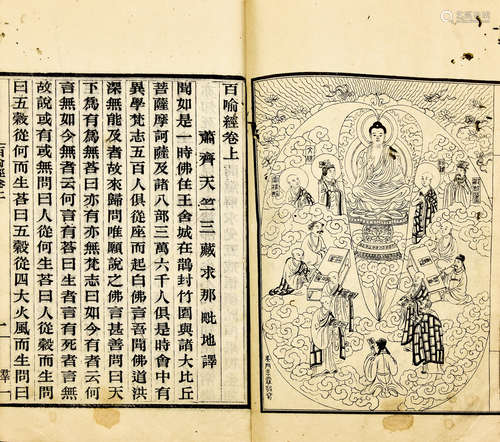 百喻經卷上
蕭齊天竺三藏求那毗地譯
聞如是一時佛在王舍城在鵲封竹園與諸大比丘
菩薩摩訶薩及諸八部三萬六千人俱是時會中有
異學梵志五百人俱從座而起白佛言吾聞佛道洪
深無能及者故來歸問唯願說之佛言甚善問曰天
下為有為無答曰亦有亦無梵志曰如今有者云何
言無如今無者云何言有答曰生者言有死者言無
故說或有或無問曰人從何生答曰人從穀而生問
曰五穀從何而生答曰五穀從四大火風而生問曰
百喻經卷上
一